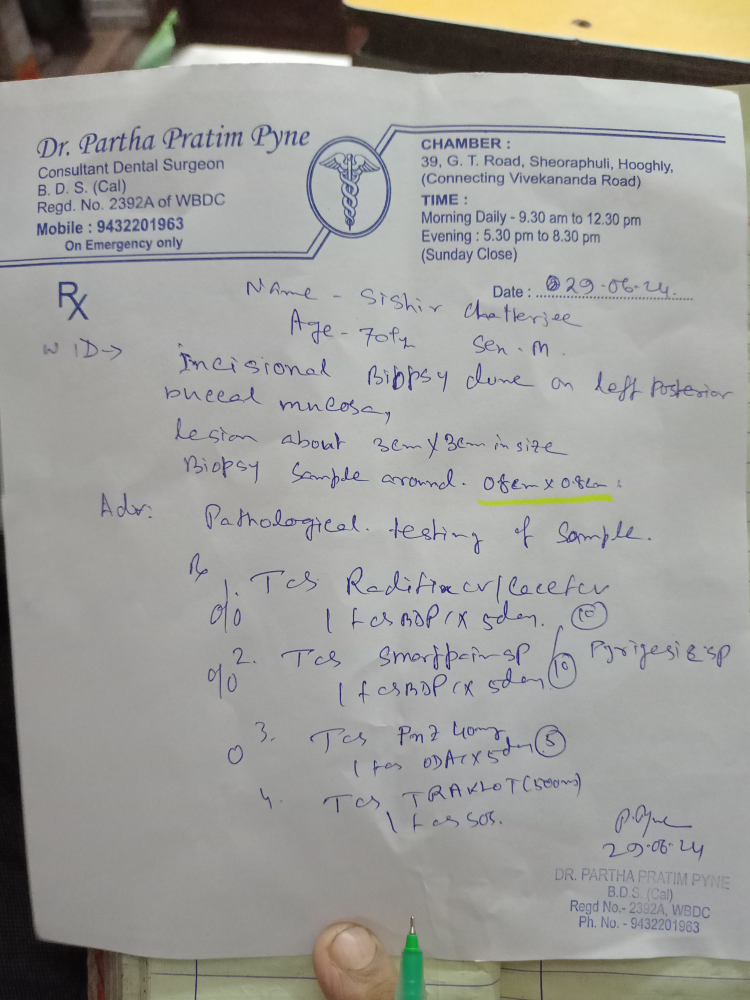 Dr. Partha Pratim Pyne
Consultant Dental Surgeon
B. D. S. (Cal)
Regd. No. 2392A of WBDC
Mobile : 9432201963
On Emergency only
CHAMBER :
39, G. T. Road, Sheoraphuli, Hooghly,
(Connecting Vivekananda Road)
TIME :
Morning Daily - 9.30 am to 12.30 pm
Evening : 5.30 pm to 8.30 pm
(Sunday Close)
Rx
Date : 29-06-24.
Name - Sishir Chatterjee
Age - 70
Sex - M.
Incisional Biopsy done on left posterior
buccal mucosa,
lesion about 3cm x 3cm in size
Biopsy sample around. 08cm x 08cm.
Adv: Pathological testing of sample.
Rx
1 BDPC x 5 day. 10
2. smartpain sp
1 BDPC x 5 day 10
3. 40mg
1 x 5 day 5
4. (500mg)
1 SOS.
P. Pyne
29-06-24
DR. PARTHA PRATIM PYNE
B.D.S. (Cal)
Regd No.- 2392A, WBDC
Ph. No. - 9432201963